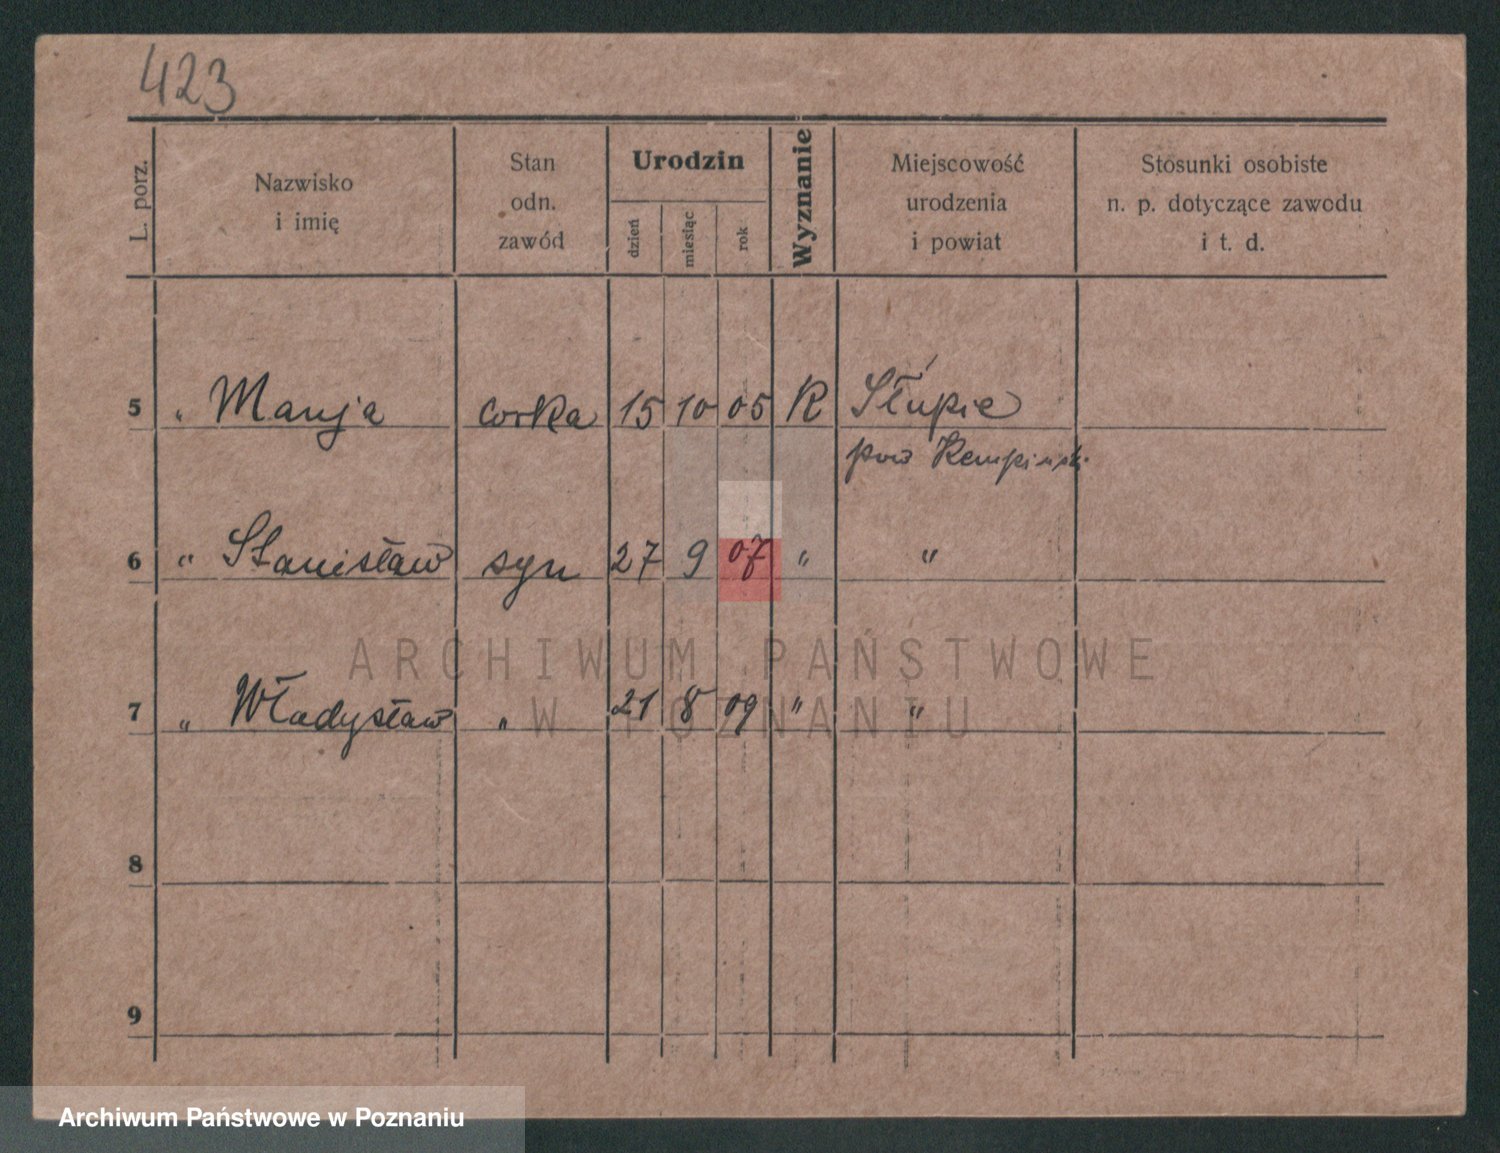 423
L. porz.
Nazwisko
i imię
Stan
odn.
zawód
Urodzin
dzień
miesiąc
rok
Wyznanie
Miejscowość
urodzenia
i powiat
Stosunki osobiste
n. p. dotyczące zawodu
i t. d.
5 " Marja corka 15 10 05 R Słupie
pow Kempiński
6 " Stanisław syn 27 9 07 " "
ARCHIWUM PAŃSTWOWE
7 " Władysław " 21 8 09 " "
W POZNANIU
8
9
Archiwum Państwowe w Poznaniu